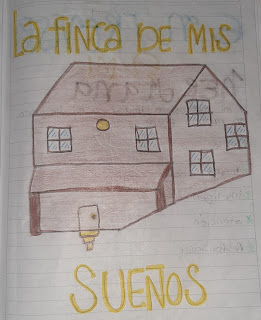 LA FINCA DE MIS
SUEÑOS